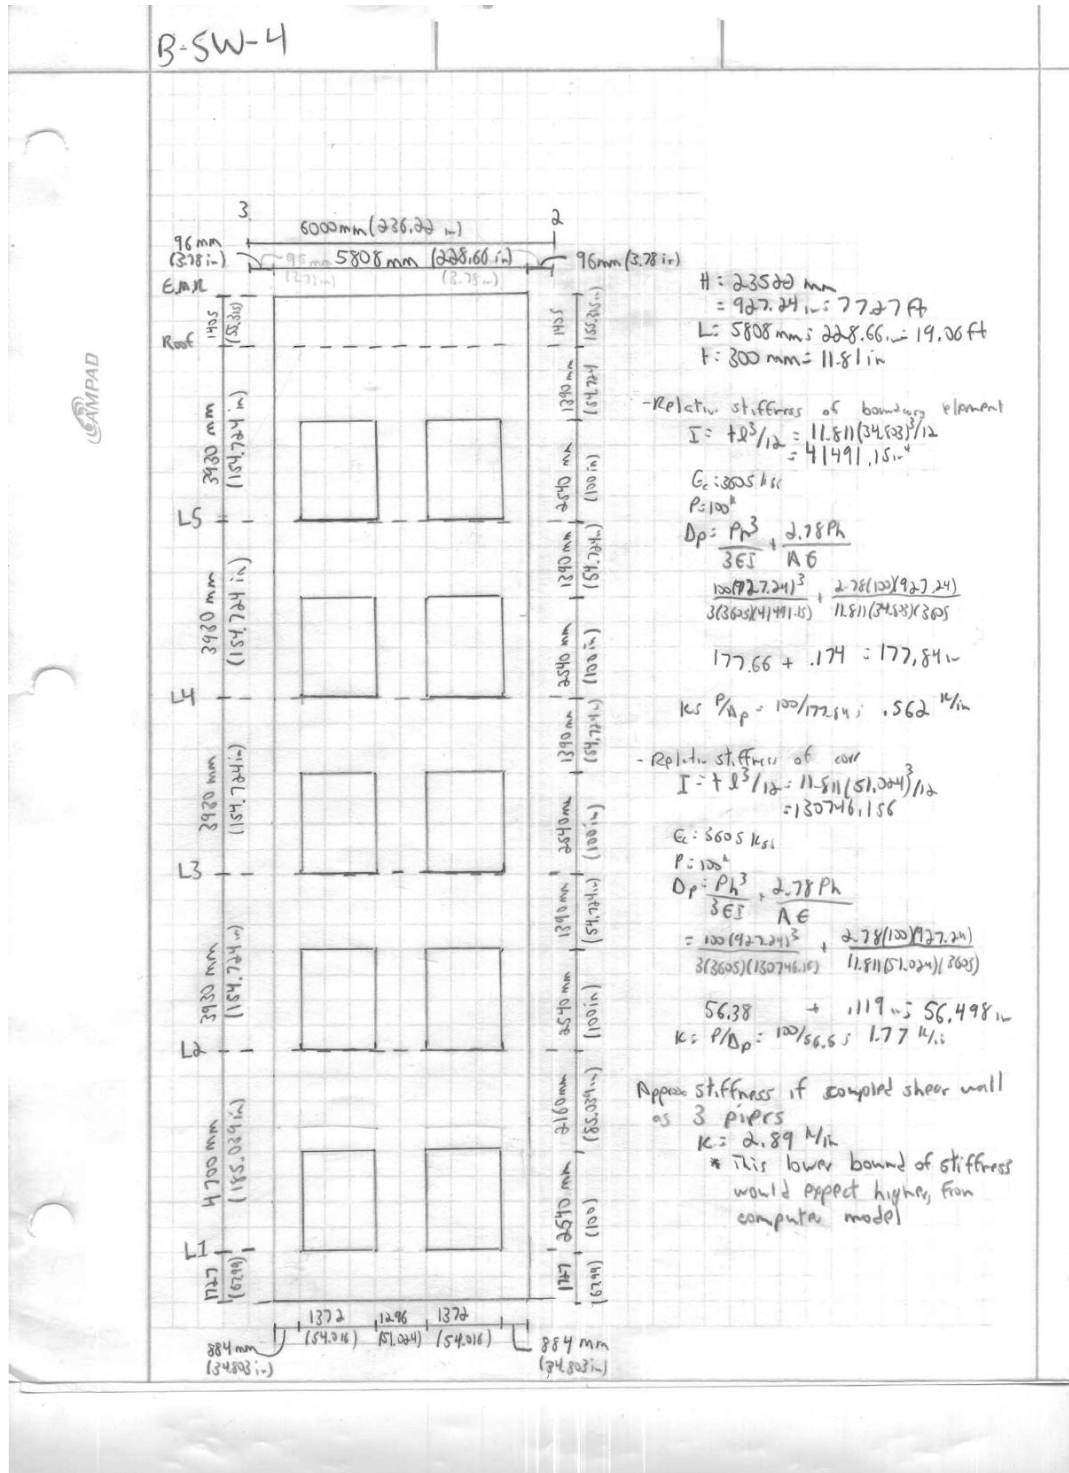 B-SW-4
AMPAD
3
2
6000mm (236.22 in)
96 mm
(3.78 in)
96 mm 5808 mm (228.66 in)
(3.78 in)
(3.78 in)
96mm (3.78 in)
E.M.R
Roof
1405
(55.315)
1405
(55.315in)
3930 mm
(154.724 in)
1390 mm
(54.724
2540 mm
(100 in)
L5
3930 mm
(154.724 in)
1390 mm
(54.724in)
2540 mm
(100 in)
L4
3930 mm
(154.724in)
1390 mm
(54.724in)
2540mm
(100 in)
L3
3930 mm
(154.724 in)
1390 mm
(54.724in)
2540 mm
(100in)
L2
4700 mm
(185.039 in)
2160mm
(85.039in)
2540 mm
(100)
L1
1727
1727
1372
1296
1372
(54.016)
(51.024)
(54.016)
884 mm
(34.803 in)
884 mm
(34.803in)
H = 23522 mm
= 927.24 in = 77.27 ft
L = 5808 mm = 228.66 in = 19.06 ft
t = 300 mm = 11.81 in
stiffness of boundary element
I = tl³/12 = 11.811(34.803)³/12
= 41491.15in⁴
Ec = 3605 ksi
P = 100ᵏ
Δp = Ph³/3EI + 2.78Ph/AE
100(927.24)³/3(3605)(41491.15) + 2.78(100)(927.24)/11.811(34.803)(3605
177.66 + .174 = 177.84in
K = P/Δp = 100/177.84 = .562 k/in
stiffness of
I = tl³/12 = 11.811(51.024)³/12
=130746.156
Ec = 3605 ksi
P = 100ᵏ
Δp = Ph³/3EI + 2.78Ph/AE
= 100(927.24)³/3(3605)(130746.16) + 2.78(100)(927.24)/11.811(51.024)(3605)
56.38 + .119 = 56.498in
K = P/Δp = 100/56.5 = 1.77 k/in
Approx stiffness if coupled shear wall
as 3 piers
K = 2.89 k/in
* This lower bound of stiffness
would expect higher, from
computer model